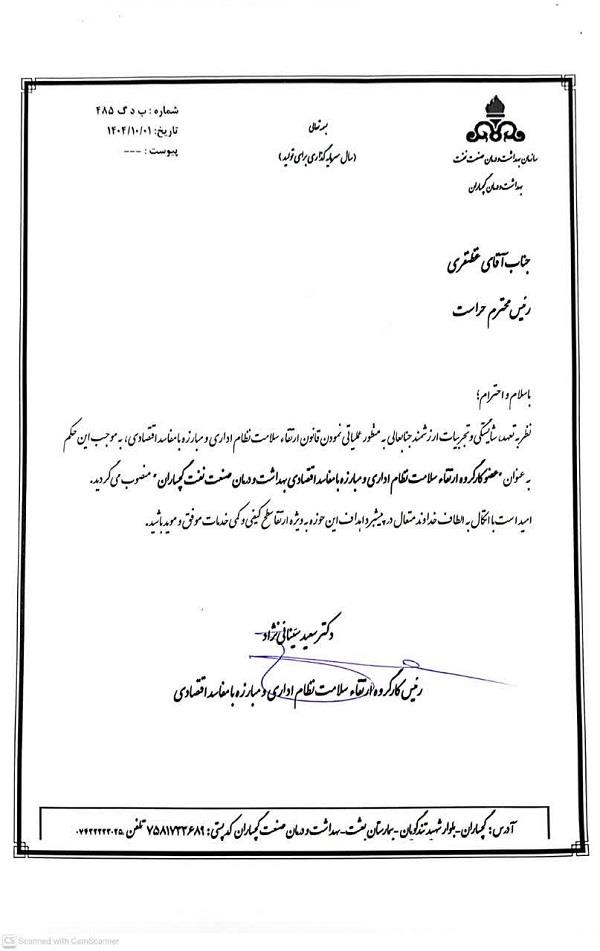 شماره : ب د گ ۴۸۵
تاریخ: ۱۴۰۴/۱۰/۰۱
پیوست : ---
بسمه تعالی
(سال سرمایه گذاری برای تولید)
سازمان بهداشت و درمان صنعت نفت
بهداشت و درمان گچساران
جناب آقای غضنفری
رئیس محترم حراست
با سلام و احترام؛
نظر به تعهد، شایستگی و تجربیات ارزشمند جنابعالی به منظور عملیاتی نمودن قانون ارتقاء سلامت نظام اداری و مبارزه با مفاسد اقتصادی، به موجب این حکم
به عنوان "عضو کارگروه ارتقاء سلامت نظام اداری و مبارزه با مفاسد اقتصادی بهداشت و درمان صنعت نفت گچساران" منصوب می گردید.
امید است با اتکال به الطاف خداوند متعال در پیشبرد اهداف این حوزه به ویژه ارتقا سطح کیفی و کمی خدمات موفق و موید باشید.
دکتر سعید سینائی نژاد
رئیس کارگروه ارتقاء سلامت نظام اداری و مبارزه با مفاسد اقتصادی
آدرس: گچساران-بلوار شهید تندگویان-بیمارستان بعثت-بهداشت و درمان صنعت گچساران کد پستی: ۷۵۸۱۷۳۳۶۸۹ تلفن
CS Scanned with CamScanner